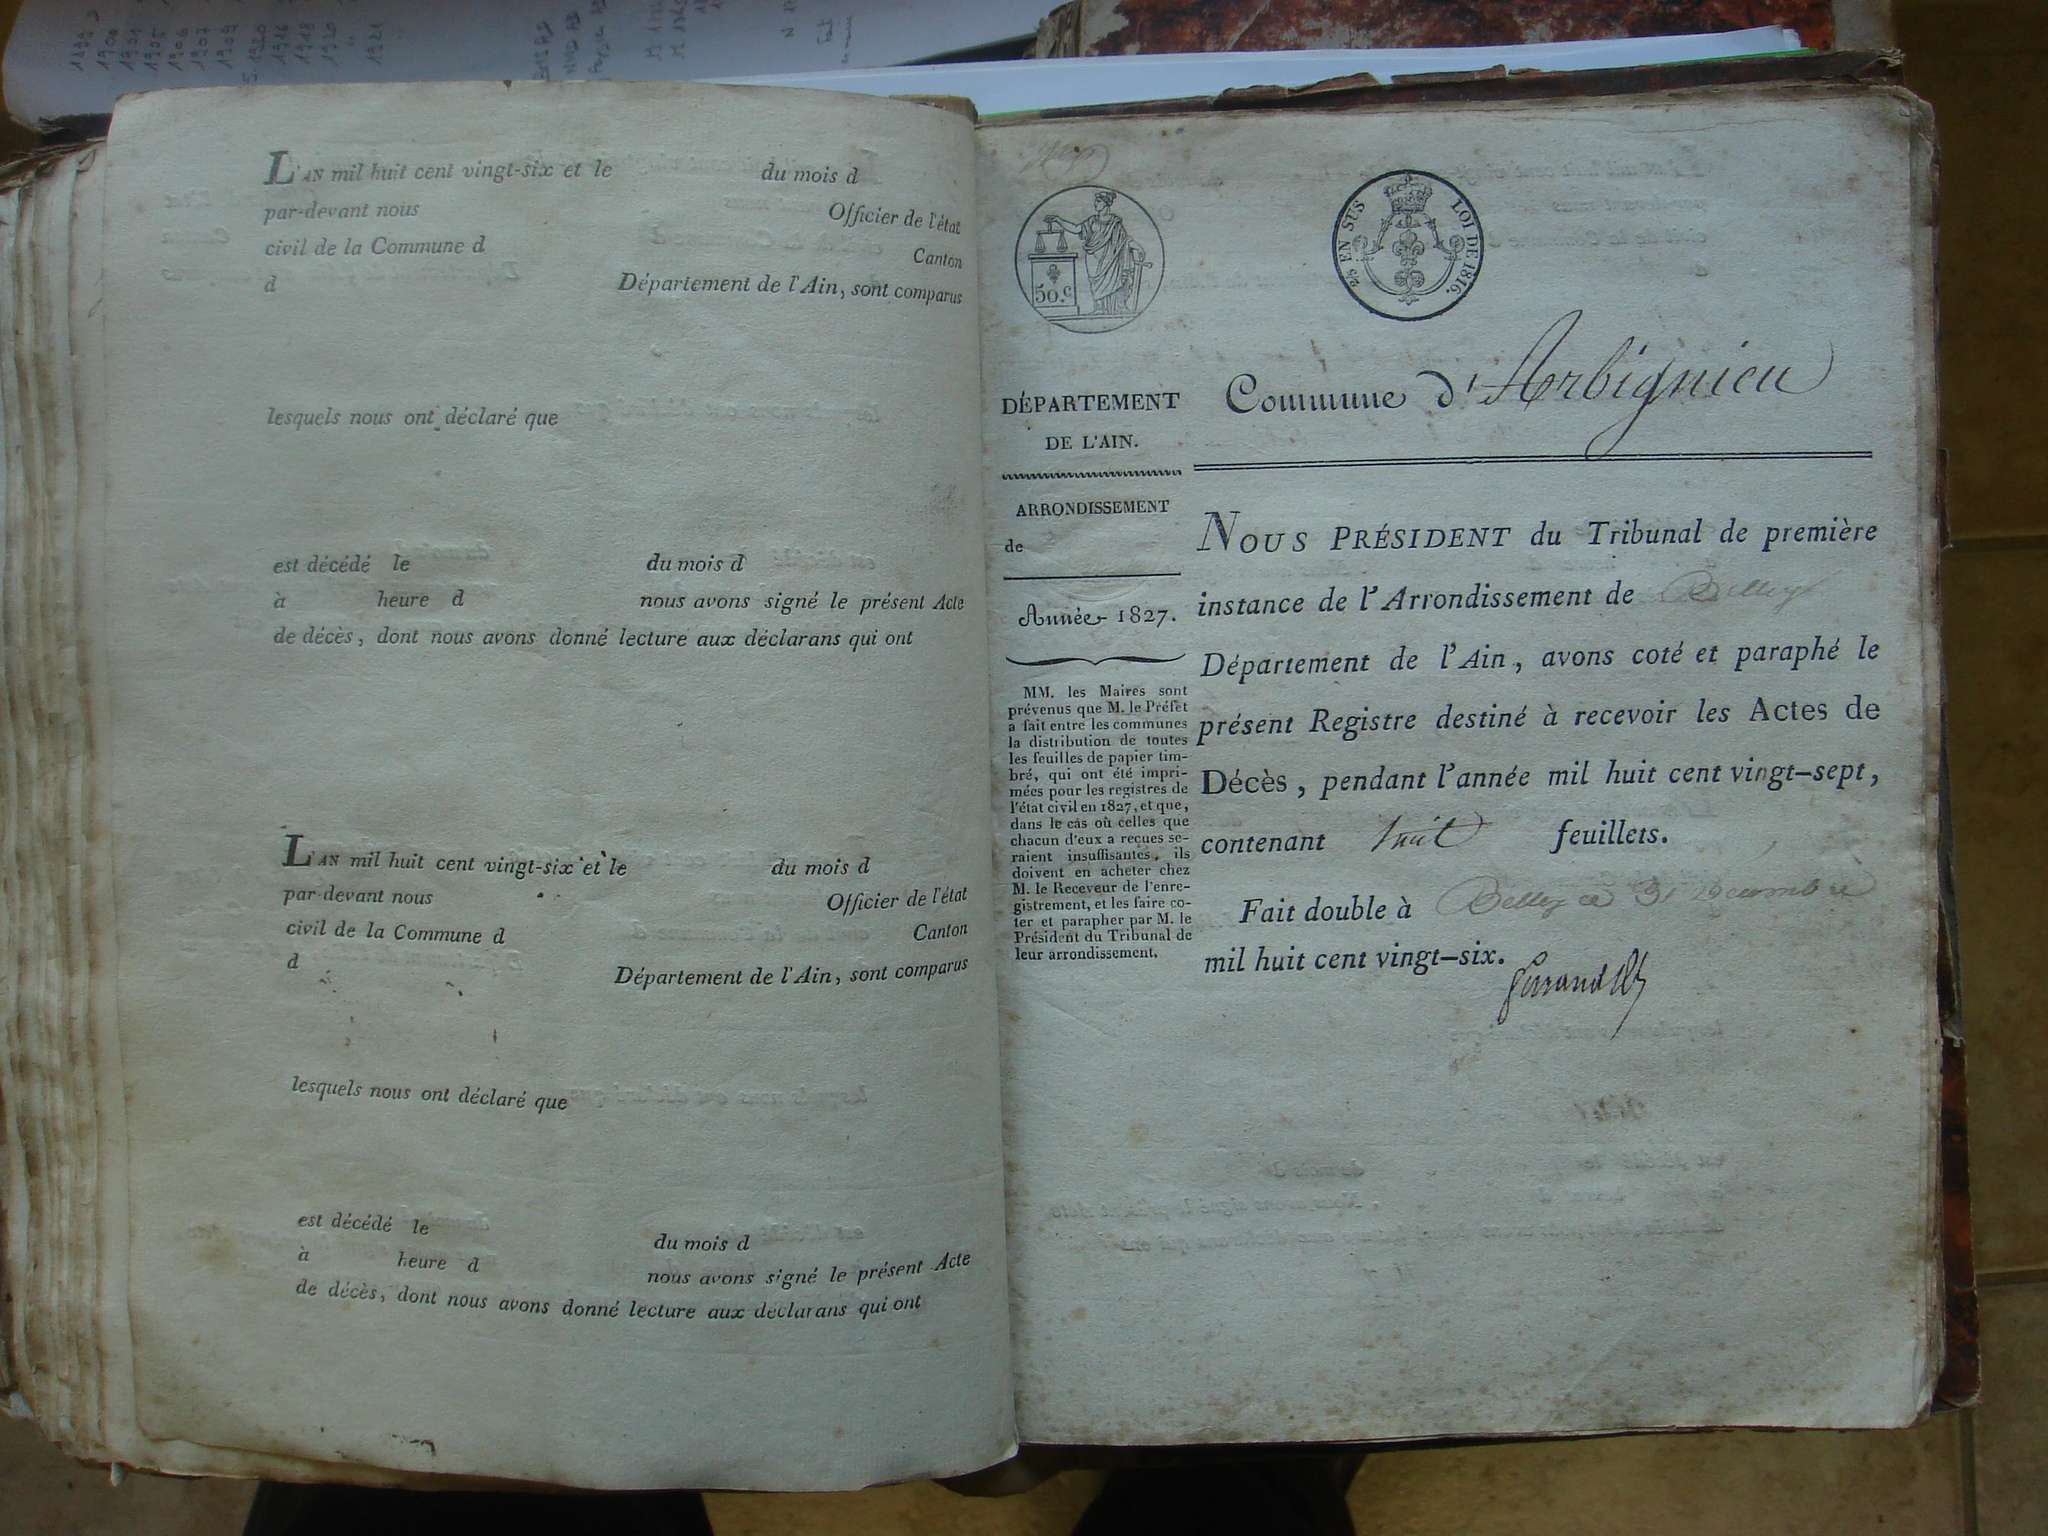 1900
1906
1907
1909
1918
1920
1921
L'AN mil huit cent vingt-six et le du mois d
par-devant nous Officier de l'état
civil de la Commune d Canton
d Département de l'Ain, sont comparus
lesquels nous ont déclaré que
est décédé le du mois d
à heure d nous avons signé le présent Acte
de décès, dont nous avons donné lecture aux déclarans qui ont
L'AN mil huit cent vingt-six et le du mois d
par-devant nous Officier de l'état
civil de la Commune d Canton
d Département de l'Ain, sont comparus
lesquels nous ont déclaré que
est décédé le du mois d
à heure d nous avons signé le présent Acte
de décès, dont nous avons donné lecture aux déclarans qui ont
50.c
EN SUS LOI DE 1816.
DÉPARTEMENT
DE L'AIN.
ARRONDISSEMENT
de
Année 1827.
MM. les Maires sont
prévenus que M. le Préfet
a fait entre les communes
la distribution de toutes
les feuilles de papier tim-
bré, qui ont été impri-
mées pour les registres de
l'état civil en 1827, et que,
dans le cas où celles que
chacun d'eux a reçues se-
raient insuffisantes, ils
doivent en acheter chez
M. le Receveur de l'enre-
gistrement, et les faire co-
ter et parapher par M. le
Président du Tribunal de
leur arrondissement.
Commune d'Arbignieu
NOUS PRÉSIDENT du Tribunal de première
instance de l'Arrondissement de Belley
Département de l'Ain, avons coté et paraphé le
présent Registre destiné à recevoir les Actes de
Décès, pendant l'année mil huit cent vingt-sept,
contenant huit feuillets.
Fait double à Belley ce 31 Décembre
mil huit cent vingt-six.